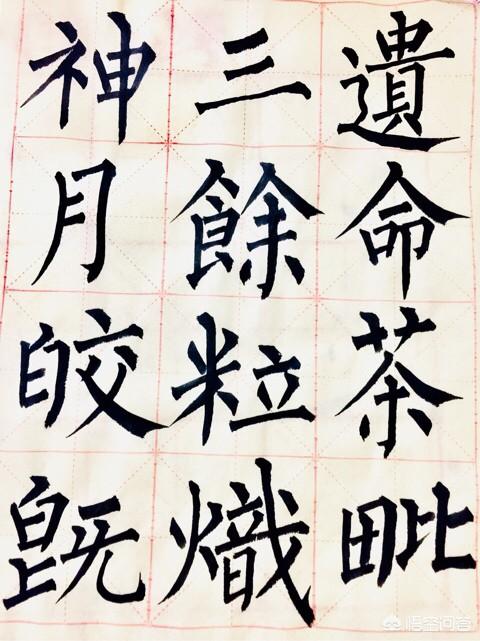 遺命茶毗
三餘粒熾
神月皎既
悟空问答